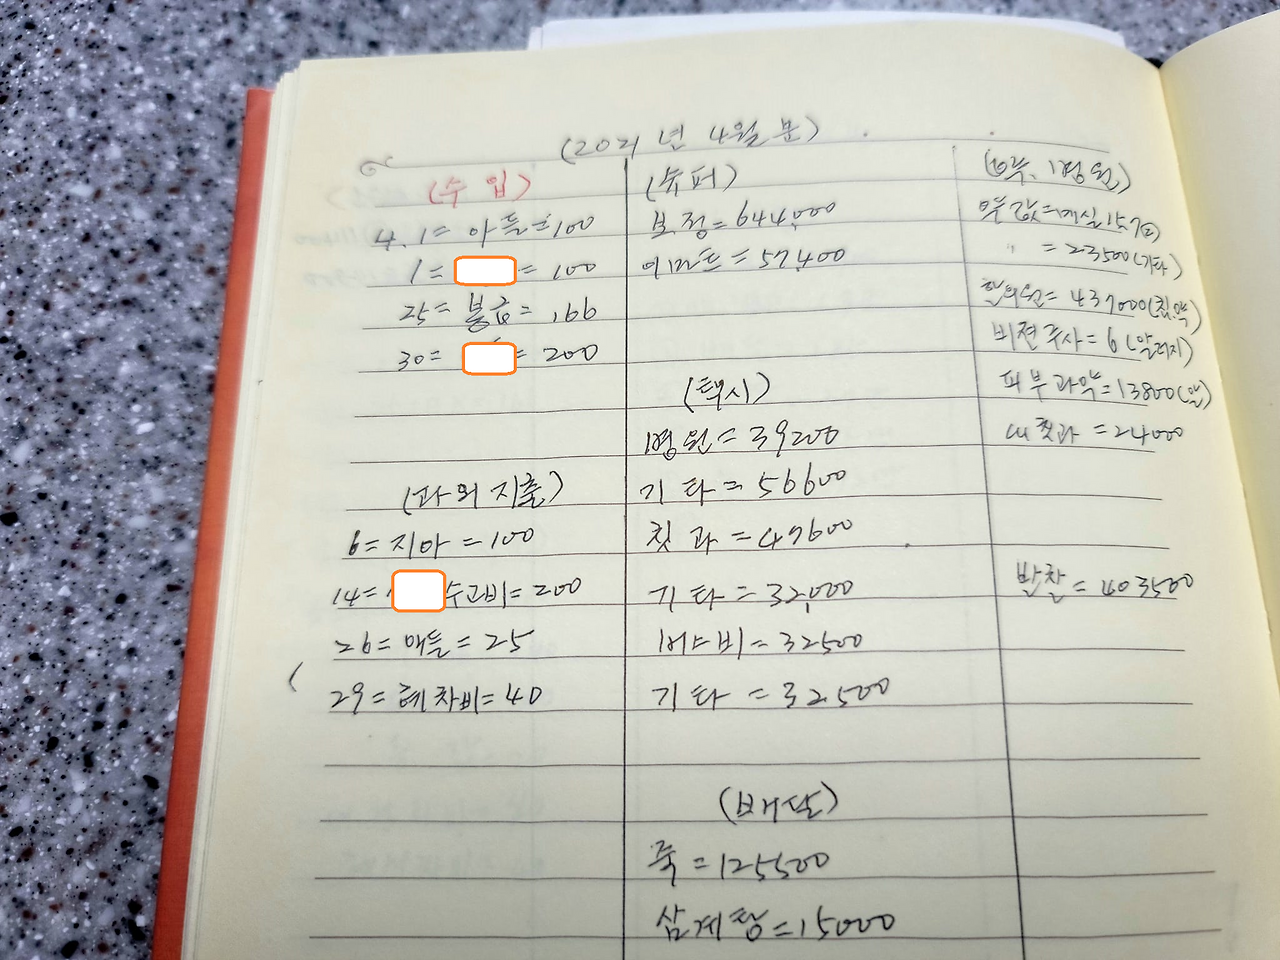 (2021년 4월분)
(수입)
4.1= 아들=100
1= = 100
25= 봉급= 166
30= = 200
(과외지출)
6= 지아 =100
14= 수고비=200
26= 매들= 25
29= 차비= 40
(슈퍼)
보정= 644,000
이마트= 57,400
(택시)
병원= 39200
기타= 56600
칫과= 47600
기타= 32,000
버스비= 32500
기타 = 32500
(배달)
죽=125500
삼계탕=15000
병원)
약값=
" = 23500(기타)
한의원= 437000(
주사= 6(알러지)
피부과약=13800(알)
칫과 =24000
반찬= 403500